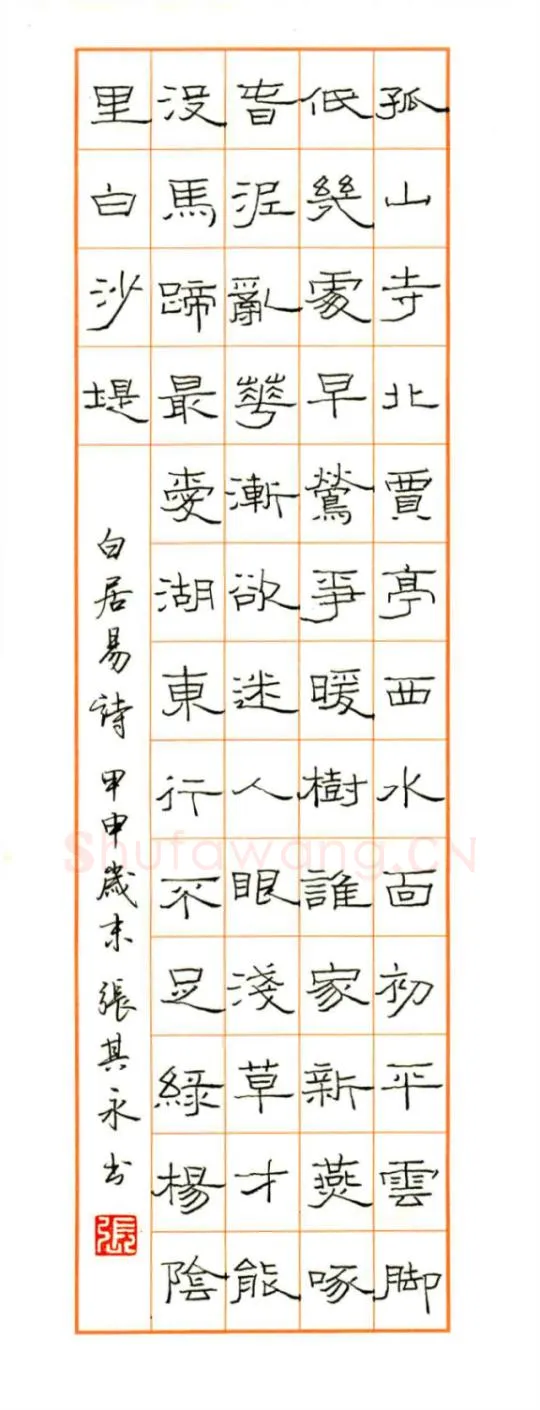 孤山寺北賈亭西水面初平雲脚
低幾處早鶯爭暖樹誰家新燕啄
春泥亂花漸欲迷人眼淺草才能
沒馬蹄最愛湖東行不足綠楊陰
里白沙堤
白居易詩 甲申歲末 張其永书
張
Shufawang.CN